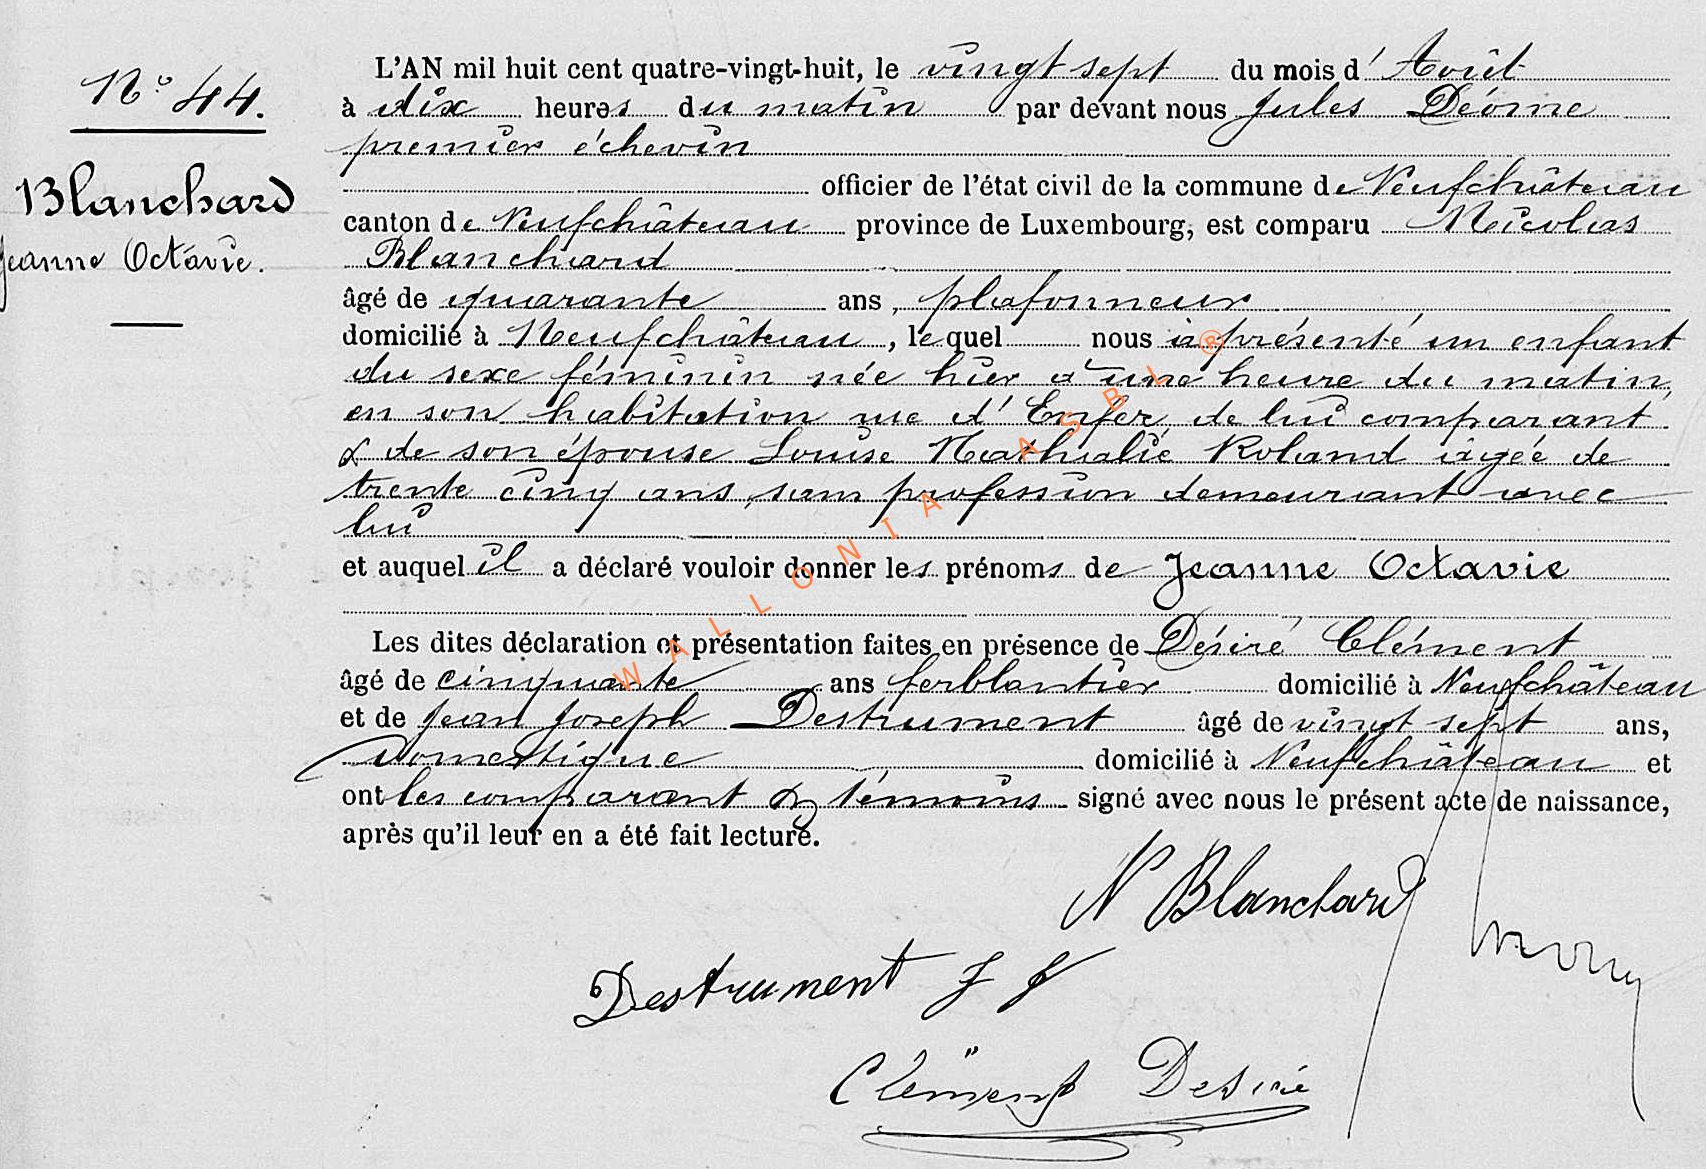 N° 44.
Blanchard
Jeanne Octavie.
L'AN mil huit cent quatre-vingt-huit, le vingt sept du mois d'Août
à dix heures du matin par devant nous Jules Déome
premier échevin
officier de l'état civil de la commune de Neufchâteau
canton de Neufchâteau province de Luxembourg, est comparu Nicolas
Blanchard
âgé de quarante ans, plafonneur
domicilié à Neufchâteau, lequel nous a présenté un enfant
du sexe féminin née hier à une heure du matin,
en son habitation rue d'Enfer, de lui comparant
& de son épouse Louise Nathalie Roland âgée de
trente cinq ans, sans profession demeurant avec
lui
et auquel il a déclaré vouloir donner les prénoms de Jeanne Octavie
Les dites déclaration et présentation faites en présence de Désiré Clément
âgé de cinquante ans ferblantier domicilié à Neufchâteau
et de Jean Joseph Destrument âgé de vingt sept ans,
domestique domicilié à Neufchâteau et
ont les comparant & témoins signé avec nous le présent acte de naissance,
après qu'il leur en a été fait lecture.
N Blanchard
Destrument J J
Clément Désiré
WALLONIA ASBL ®